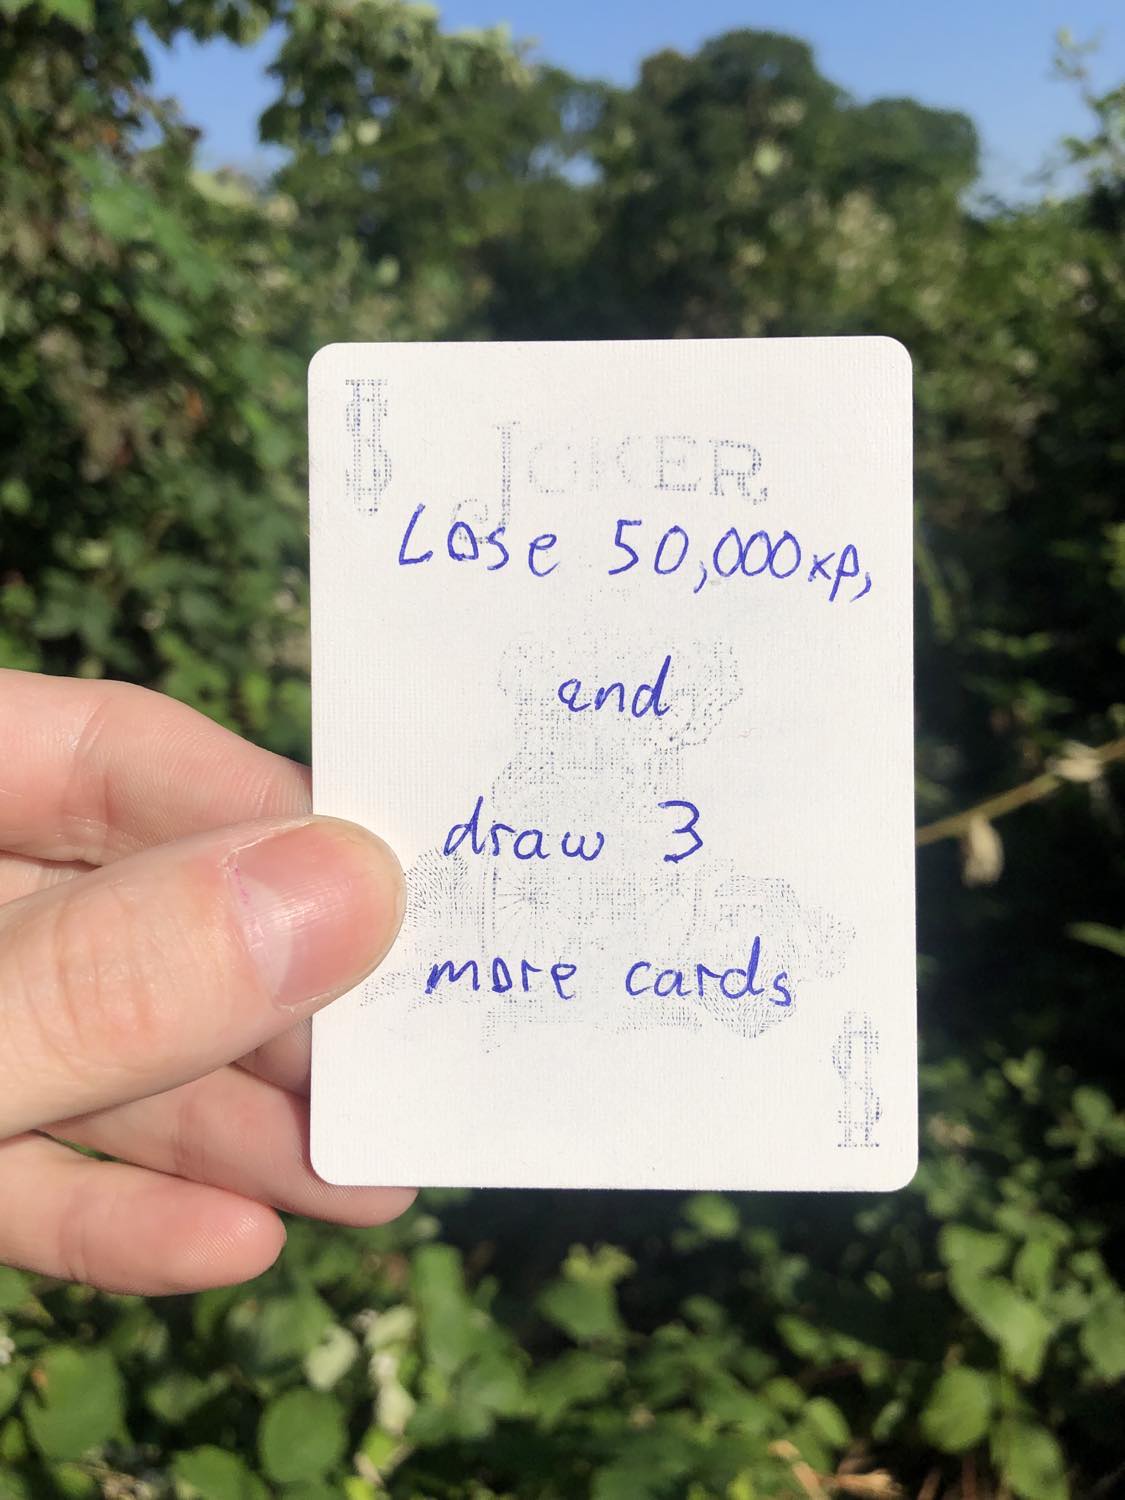 JOKER
Lose 50,000xp,
and
draw 3
more cards